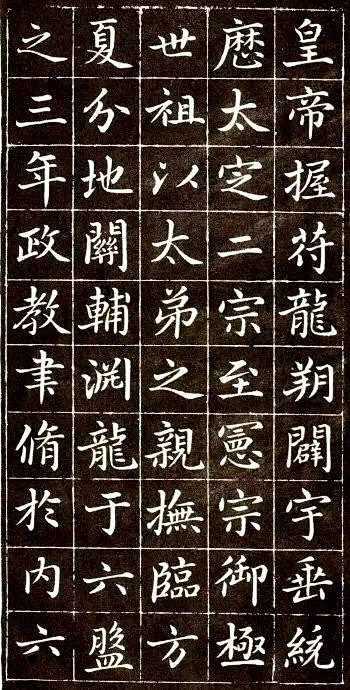 皇帝握符龍朔闢宇垂統
歷太定二宗至憲宗御極
世祖以太弟之親撫臨方
夏分地關輔淵龍于六盤
之三年政教聿脩於内六